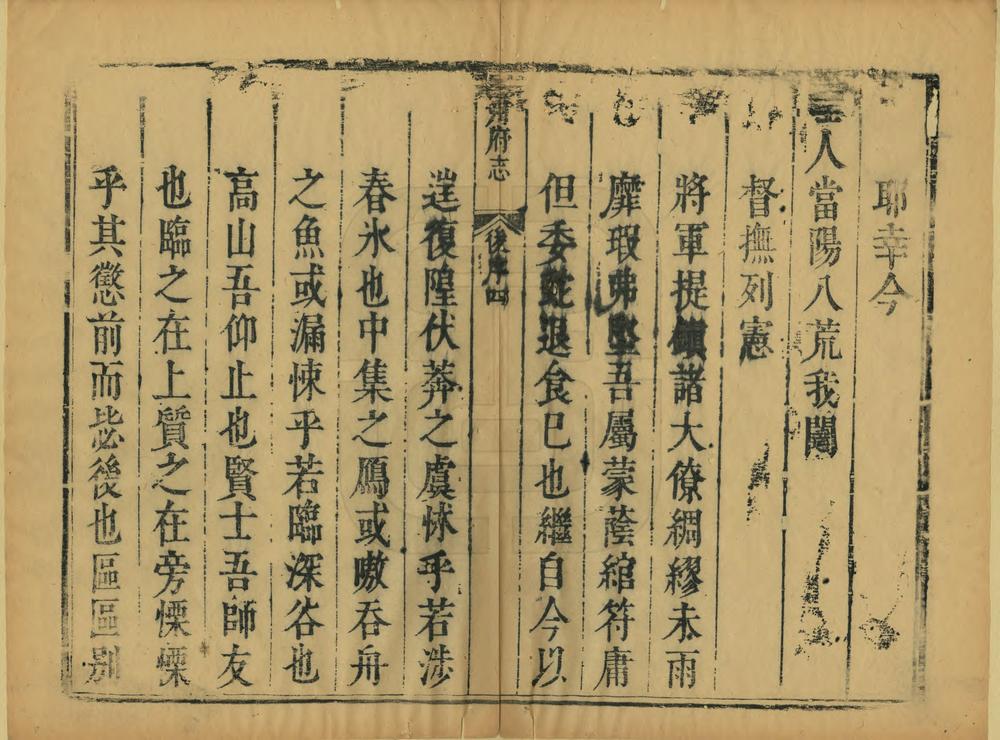 耶幸今
王人當陽八荒我闥
督撫列憲
將軍提鎮諸大僚綢繆未雨
靡瑕弗堅吾屬蒙蔭綰符庸
但委蛇退食已也繼自今以
府志
後序四
遑復隍伏莽之虞怵乎若涉
春氷也中集之鴈或嗷吞舟
之魚或漏悚乎若臨深谷也
高山吾仰止也賢士吾師友
也臨之在上質之在旁慄慄
乎其懲前而毖後也區區别